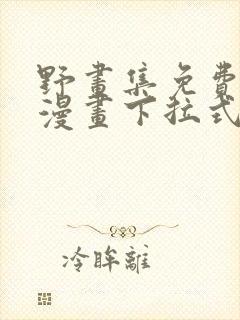 野畫集免費
漫畫下拉式
冷眸離